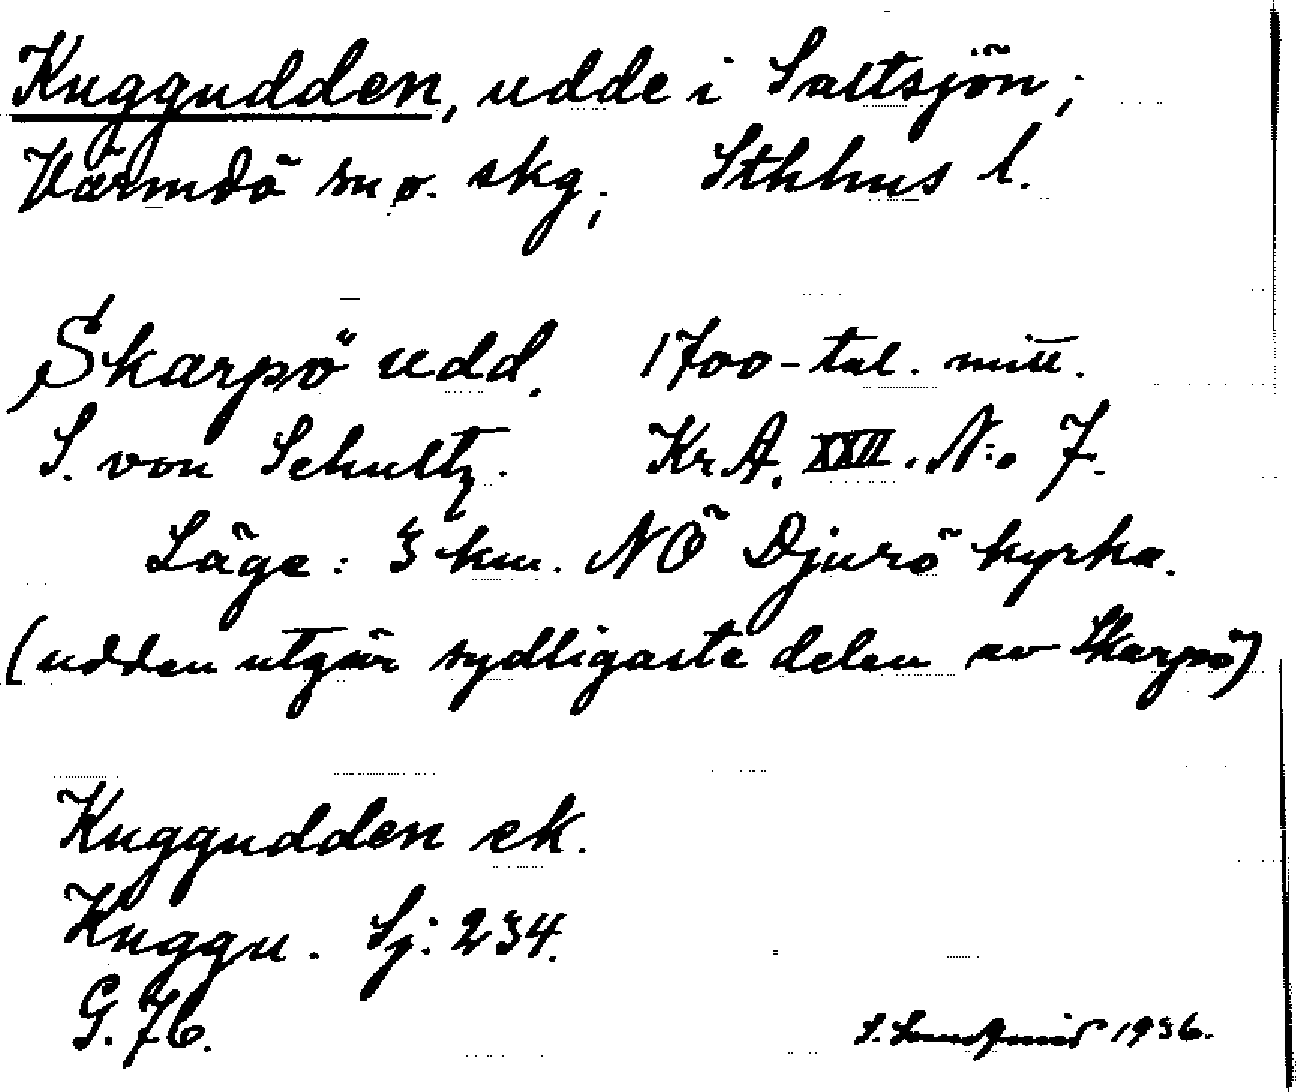 Kuggudden, udde i Saltsjön;
Värmdö sn o. skg; Sthlms l.
Skarpö udd. 1700-tal. mitt.
S. von Schultz. Kr.A. XXII. No 7.
Läge: 3 km. NÖ Djurö kyrka.
(udden utgör sydligaste delen av Skarpö)
Kuggudden ek.
Kuggu. Sj: 234.
G. 76.
1936.